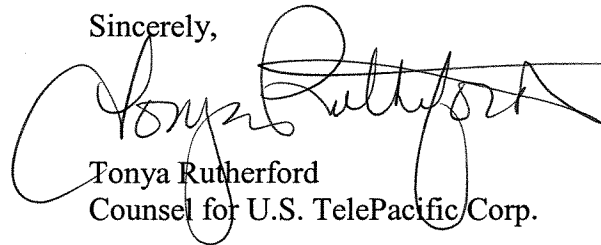 Sincerely,
Tonya Rutherford
Tonya Rutherford
Counsel for U.S. TelePacific Corp.